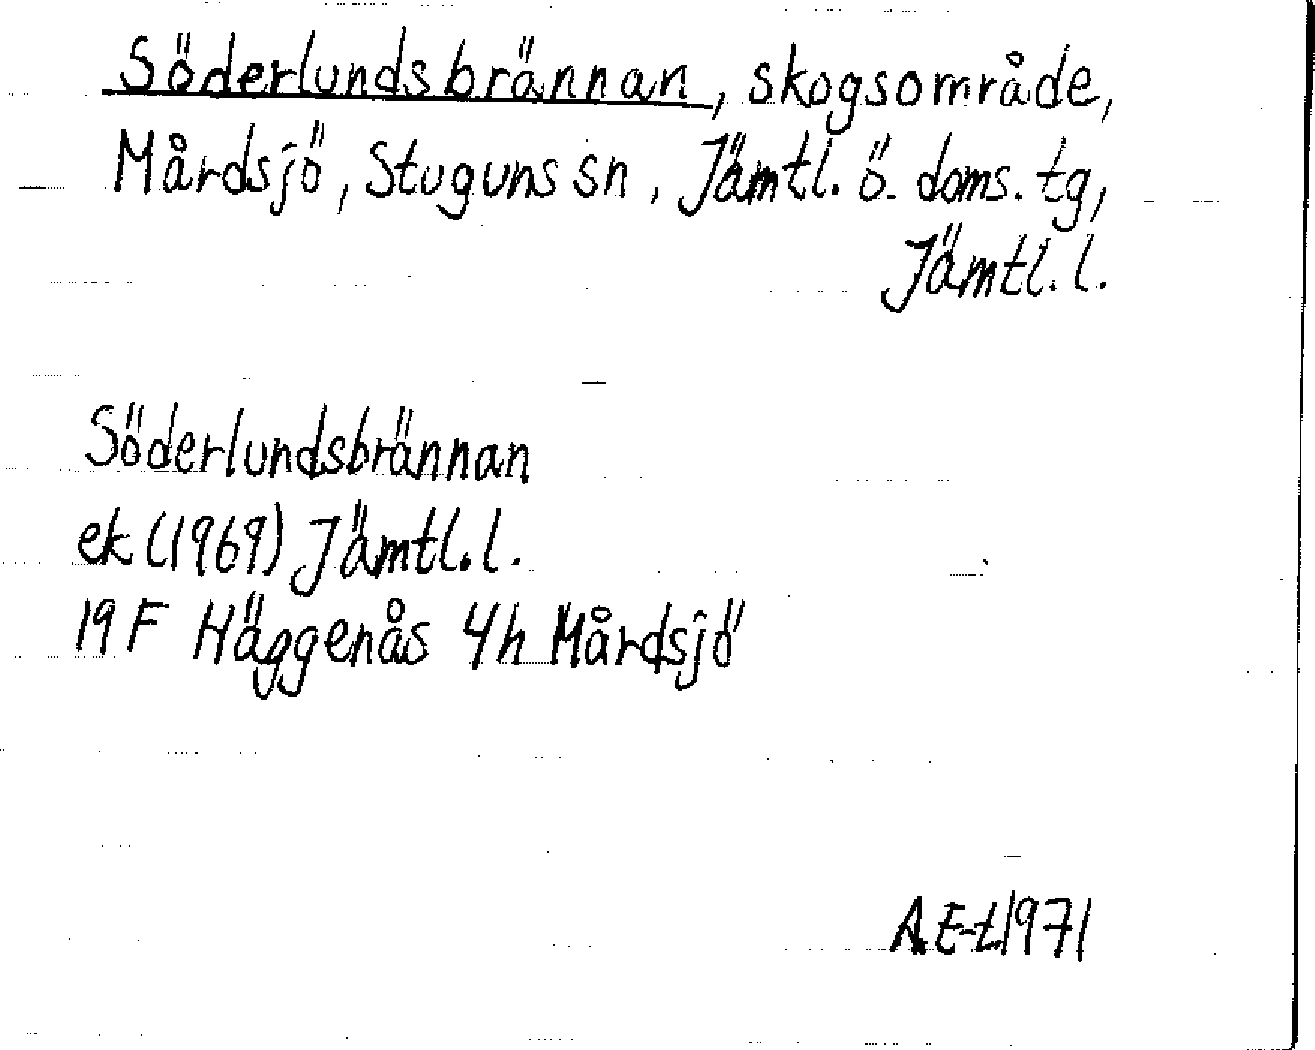 Söderlundsbrännan, skogsområde,
Mårdsjö, Stuguns sn, Jämtl. ö. doms. tg,
Jämtl. l.
Söderlundsbrännan
ek (1969) Jämtl. l.
19 F Häggenås 4h Mårdsjö
A.E-t 1971